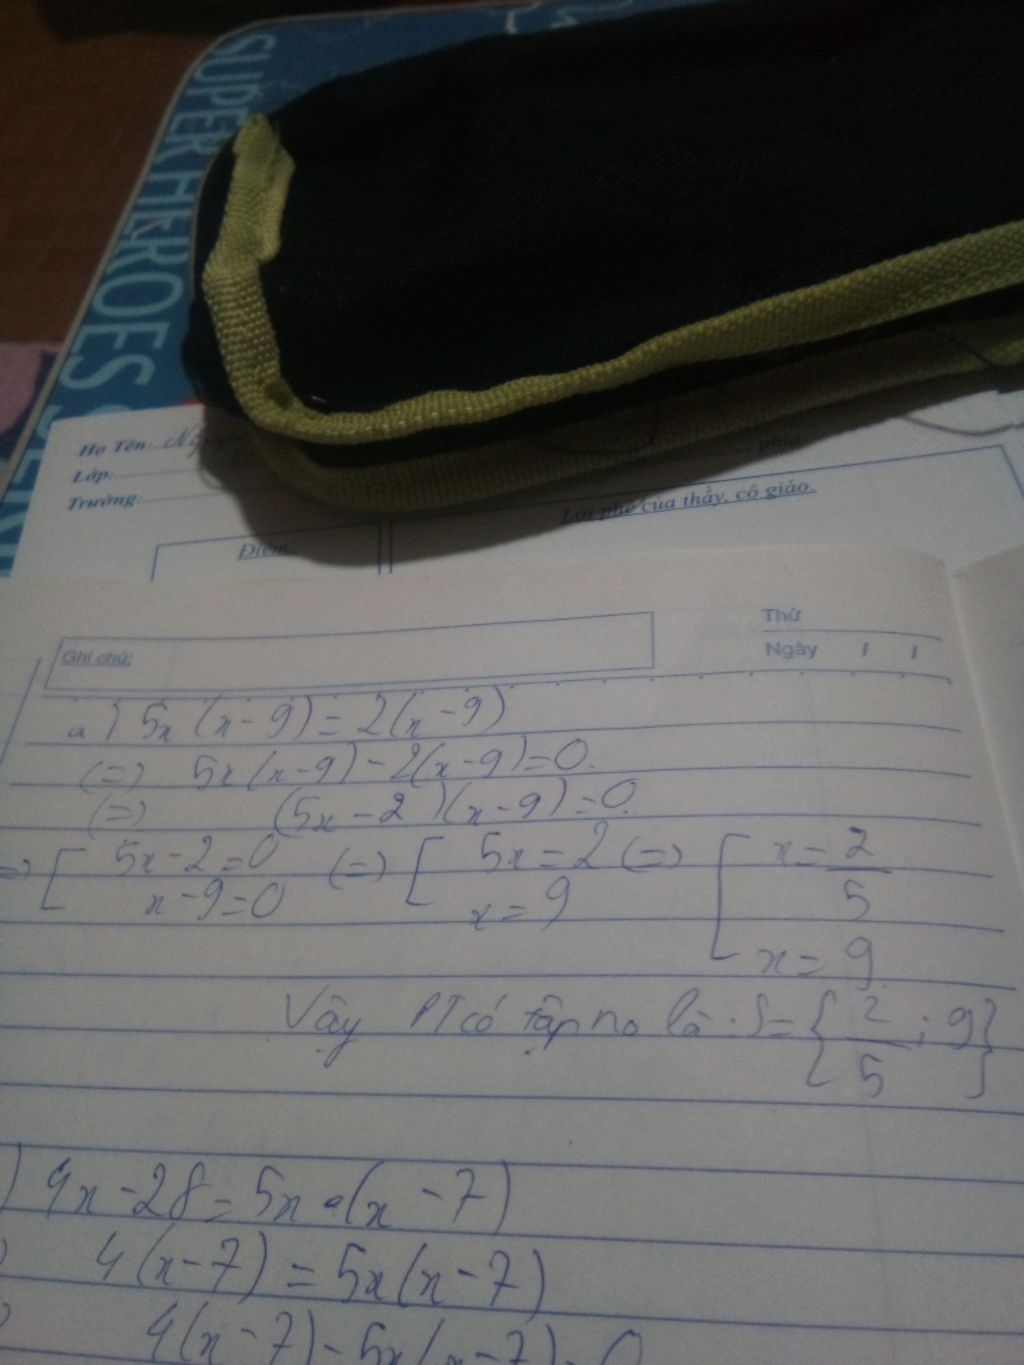 SUPER HEROES
Họ Tên:
Lớp:
Trường:
Điểm
Lời phê của thầy, cô giáo.
Thứ
Ngày / /
Ghi chú:
a) 5x(x-9)=2(x-9)
(=) 5x(x-9)-2(x-9)=0.
(=) (5x-2)(x-9)=0.
=) [ 5x-2=0 (=) [ 5x=2 (=) [ x=2/5
x-9=0 x=9 x=9
Vậy PT có tập no là: S={2/5;9}
) 4x-28=5x(x-7)
) 4(x-7)=5x(x-7)
) 4(x-7)-5x(x-7)=0